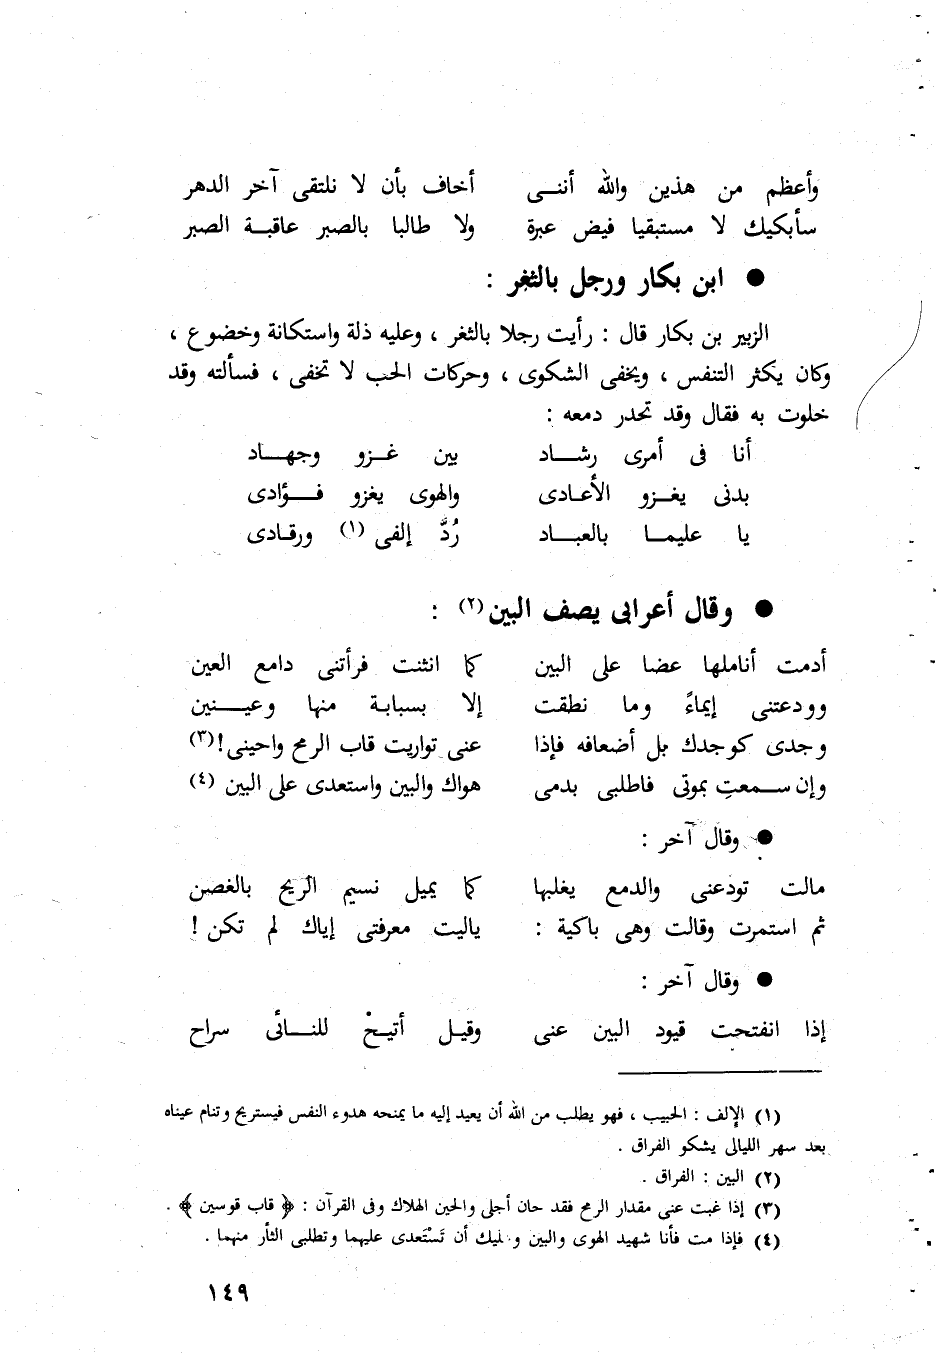 وأعظم من هذين والله أننـــى أخاف بأن لا نلتقى آخر الدهر
سأبكيك لا مستبقيا فيض عبرة ولا طالبا بالصبر عاقبة الصبر
● ابن بكار ورجل بالثغر :
الزبير بن بكار قال : رأيت رجلا بالثغر ، وعليه ذلة واستكانة وخضوع ،
وكان يكثر التنفس ، ويخفى الشكوى ، وحركات الحب لا تخفى ، فسألته وقد
خلوت به فقال وقد تحدر دمعه :
أنا فى أمرى رشاد بين غزو وجهاد
بدنى يغزو الأعادى والهوى يغزو فؤادى
يا عليما بالعباد رُدَّ إلفى (١) ورقادى
● وقال أعرابى يصف البين (٢) :
أدمت أناملها عضا على البين كما انثنت فرأتنى دامع العين
وودعتنى إيماءً وما نطقت إلا بسبابة منها وعينين
وجدى كوجدك بل أضعافه فإذا عنى تواريت قاب الرمح واحينى ! (٣)
وإن سمعتِ بموتى فاطلبى بدمى هواك والبين واستعدى على البين (٤)
● وقال آخر :
مالت تودعنى والدمع يغلبها كما يميل نسيم الريح بالغصن
ثم استمرت وقالت وهى باكية : ياليت معرفتى إياك لم تكن !
● وقال آخر :
إذا انفتحت قيود البين عنى وقيل أتيحْ للنائى سراح
(١) الإلف : الحبيب ، فهو يطلب من الله أن يعيد إليه ما يمنحه هدوء النفس فيستريح وتنام عيناه
بعد سهر الليالى يشكو الفراق .
(٢) البين : الفراق .
(٣) إذا غبت عنى مقدار الرمح فقد حان أجلى والحين الهلاك وفى القرآن : ﴿ قاب قوسين ﴾ .
(٤) فإذا مت فأنا شهيد الهوى والبين وعليك أن تَسْتَعدى عليهما وتطلبى الثأر منهما .
١٤٩